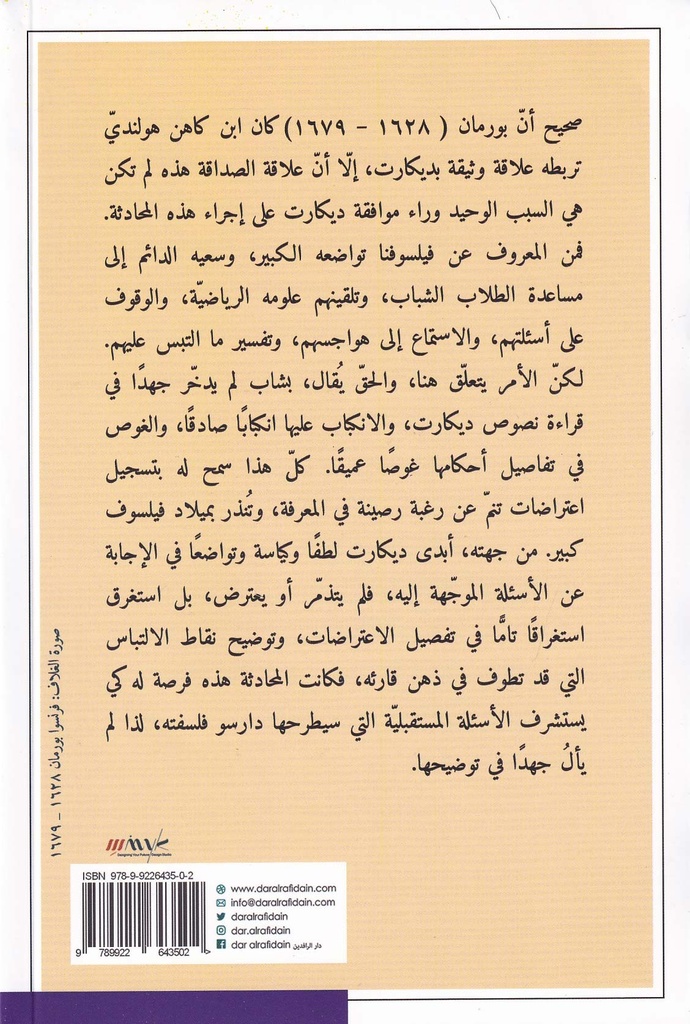 صحيح أنّ بورمان ( ١٦٢٨ - ١٦٧٩) كان ابن كاهن هولنديّ
تربطه علاقة وثيقة بديكارت، إلّا أنّ علاقة الصداقة هذه لم تكن
هي السبب الوحيد وراء موافقة ديكارت على إجراء هذه المحادثة.
فمن المعروف عن فيلسوفنا تواضعه الكبير، وسعيه الدائم إلى
مساعدة الطلاب الشباب، وتلقينهم علومه الرياضيّة، والوقوف
على أسئلتهم، والاستماع إلى هواجسهم، وتفسير ما التبس عليهم.
لكنّ الأمر يتعلّق هنا، والحقّ يُقال، بشاب لم يدخّر جهدًا في
قراءة نصوص ديكارت، والانكباب عليها انكبابًا صادقًا، والغوص
في تفاصيل أحكامها غوصًا عميقًا. كلّ هذا سمح له بتسجيل
اعتراضات تنمّ عن رغبة رصينة في المعرفة، وتُنذر بميلاد فيلسوف
كبير. من جهته، أبدى ديكارت لطفًا وكياسة وتواضعًا في الإجابة
عن الأسئلة الموجّهة إليه، فلم يتذمّر أو يعترض، بل استغرق
استغراقًا تامًّا في تفصيل الاعتراضات، وتوضيح نقاط الالتباس
التي قد تطوف في ذهن قارئه، فكانت المحادثة هذه فرصة له كي
يستشرف الأسئلة المستقبليّة التي سيطرحها دارسو فلسفته، لذا لم
يألُ جهدًا في توضيحها.
صورة الغلاف: فرنسوا بورمان ١٦٢٨ - ١٦٧٩
ISBN 978-9-9226435-0-2
9 789922 643502
www.daralrafidain.com
info@daralrafidain.com
daralrafidain
dar.alrafidain
dar alrafidain دار الرافدين